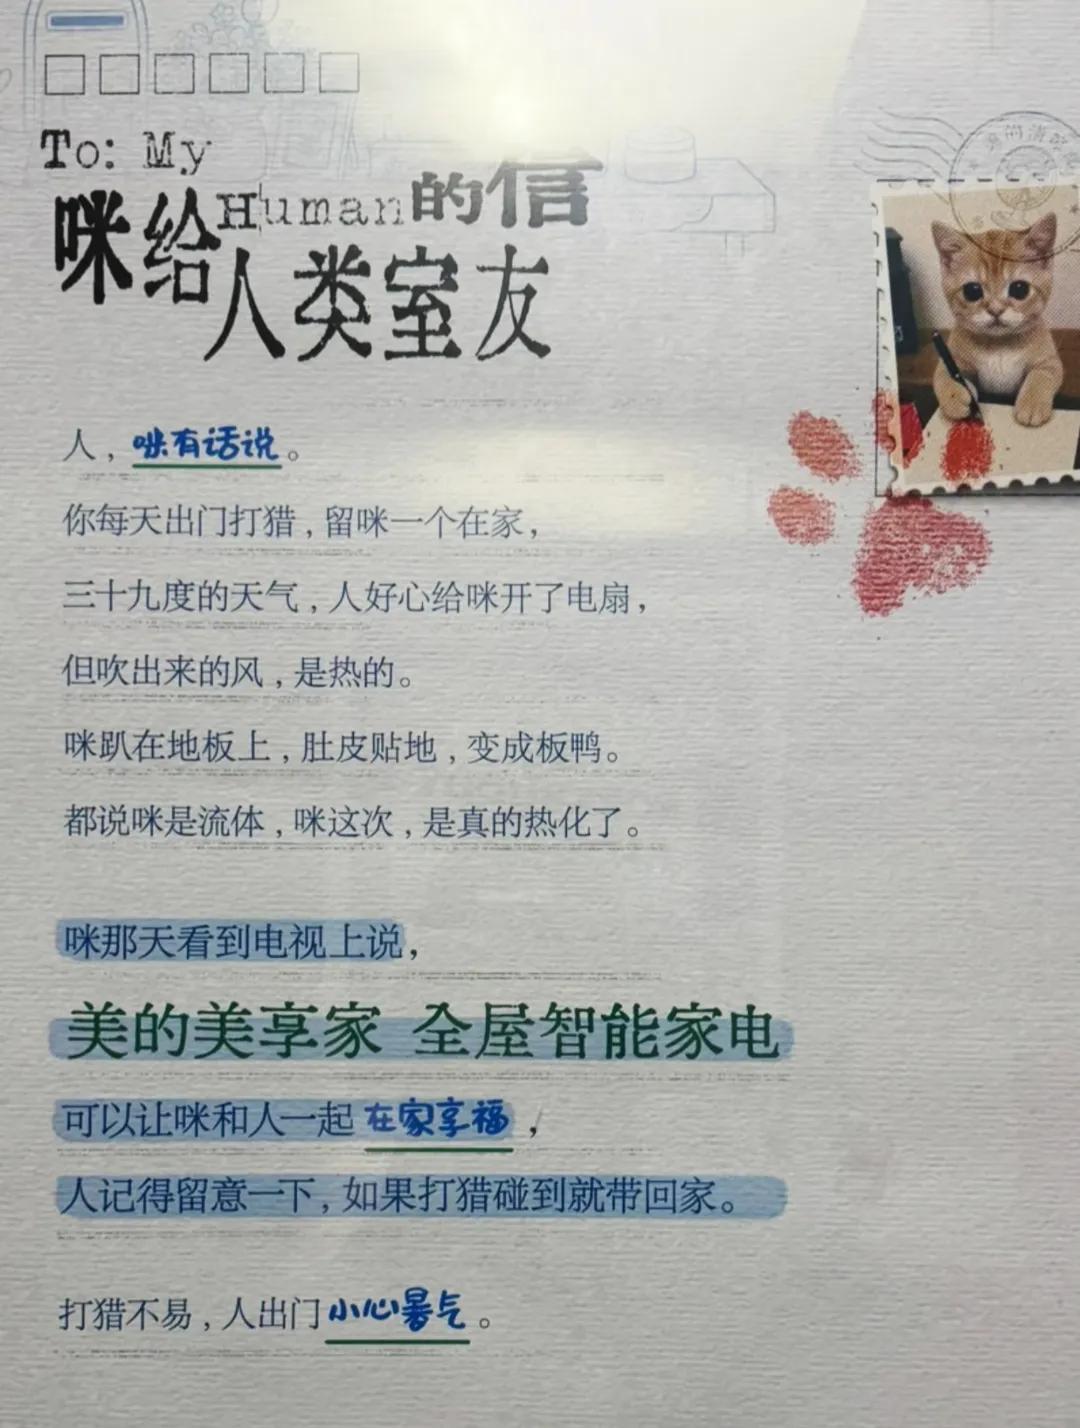 To: My
咪给Human的信
人类室友
人，咪有话说。
你每天出门打猎，留咪一个在家，
三十九度的天气，人好心给咪开了电扇，
但吹出来的风，是热的。
咪趴在地板上，肚皮贴地，变成板鸭。
都说咪是流体，咪这次，是真的热化了。
咪那天看到电视上说，
美的美享家 全屋智能家电
可以让咪和人一起 在家享福，
人记得留意一下，如果打猎碰到就带回家。
打猎不易，人出门小心暑气。